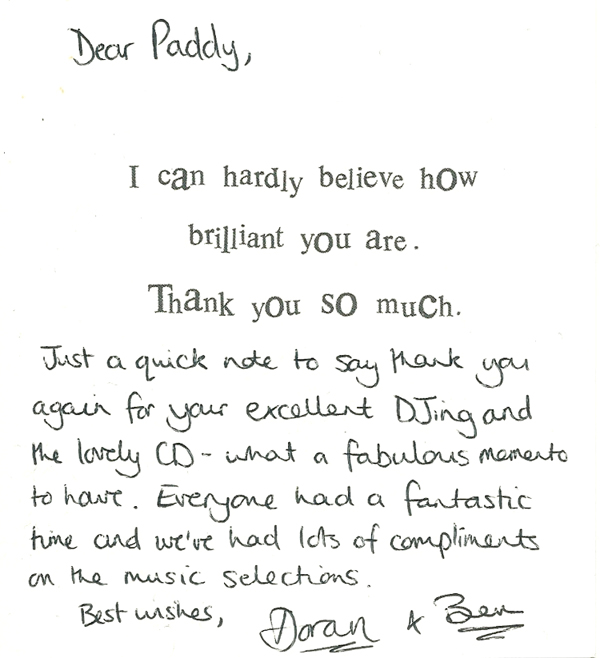 Dear Paddy,
I can hardly believe how
brilliant you are.
Thank you so much.
Just a quick note to say thank you
again for your excellent DJing and
the lovely CD - what a fabulous memento
to have. Everyone had a fantastic
time and we've had lots of compliments
on the music selections.
Best wishes, Doran & Ben